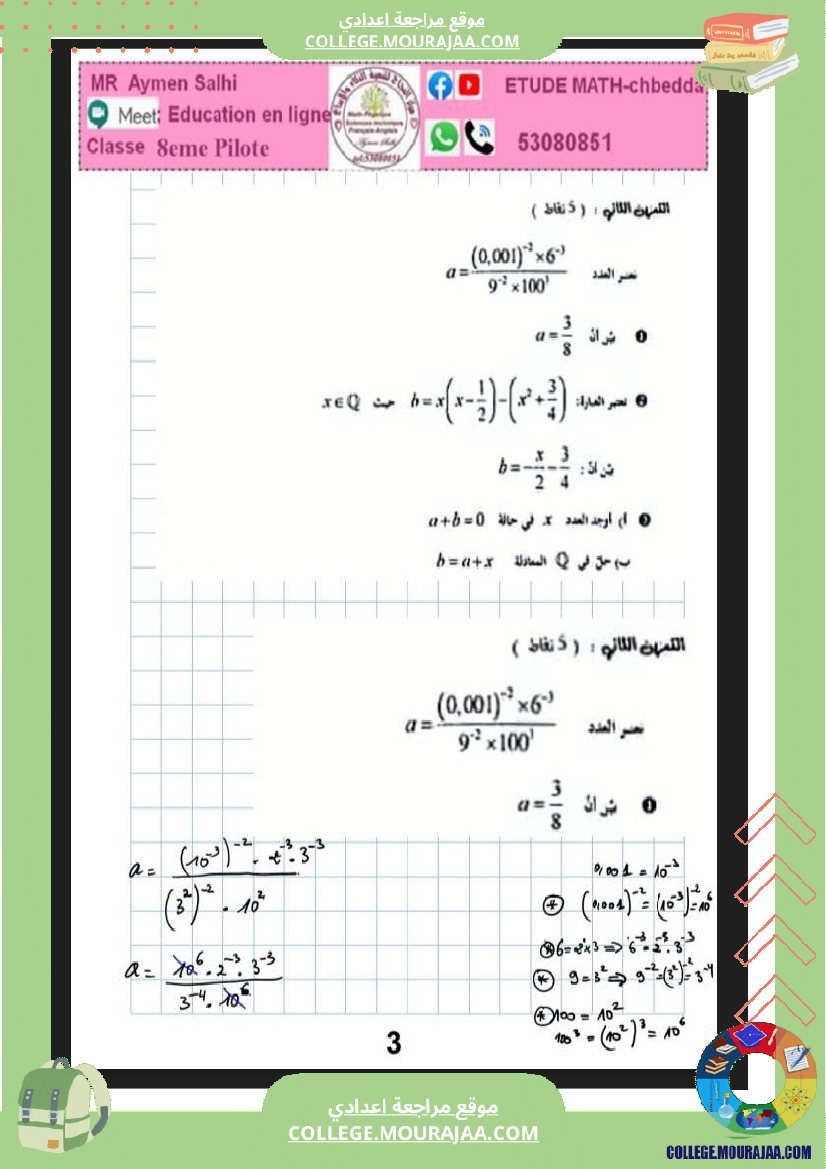 موقع مراجعة اعدادي
COLLEGE.MOURAJAA.COM
MR Aymen Salhi
ETUDE MATH-chbedda
Meet; Education en ligne
Classe 8eme Pilote
53080851
التمرين الثاني : ( 5 نقاط )
نعتبر العدد a = (0,001)⁻² × 6⁻³ / 9⁻² × 100³
❶ بيّن أنّ a = 3/8
❷ نعتبر العبارة: b = x(x − 1/2) − (x² + 3/4) حيث x ∈ Q
بيّن أنّ : b = −x/2 − 3/4
❸ أ) أوجد العدد x في حالة a + b = 0
ب) حلّ في Q المعادلة b = a + x
التمرين الثاني : ( 5 نقاط )
نعتبر العدد a = (0,001)⁻² × 6⁻³ / 9⁻² × 100³
❶ بيّن أنّ a = 3/8
a = (10⁻³)⁻² · 2⁻³ · 3⁻³ / (3²)⁻² · 10²
a = 10⁶ · 2⁻³ · 3⁻³ / 3⁻⁴ · 10⁶
0,001 = 10⁻³
* (0,001)⁻² = (10⁻³)⁻² = 10⁶
* 6 = 2×3 ⇒ 6⁻³ = 2⁻³ · 3⁻³
* 9 = 3² ⇒ 9⁻² = (3²)⁻² = 3⁻⁴
* 100 = 10²
100³ = (10²)³ = 10⁶
3
موقع مراجعة اعدادي
COLLEGE.MOURAJAA.COM
COLLEGE.MOURAJAA.COM